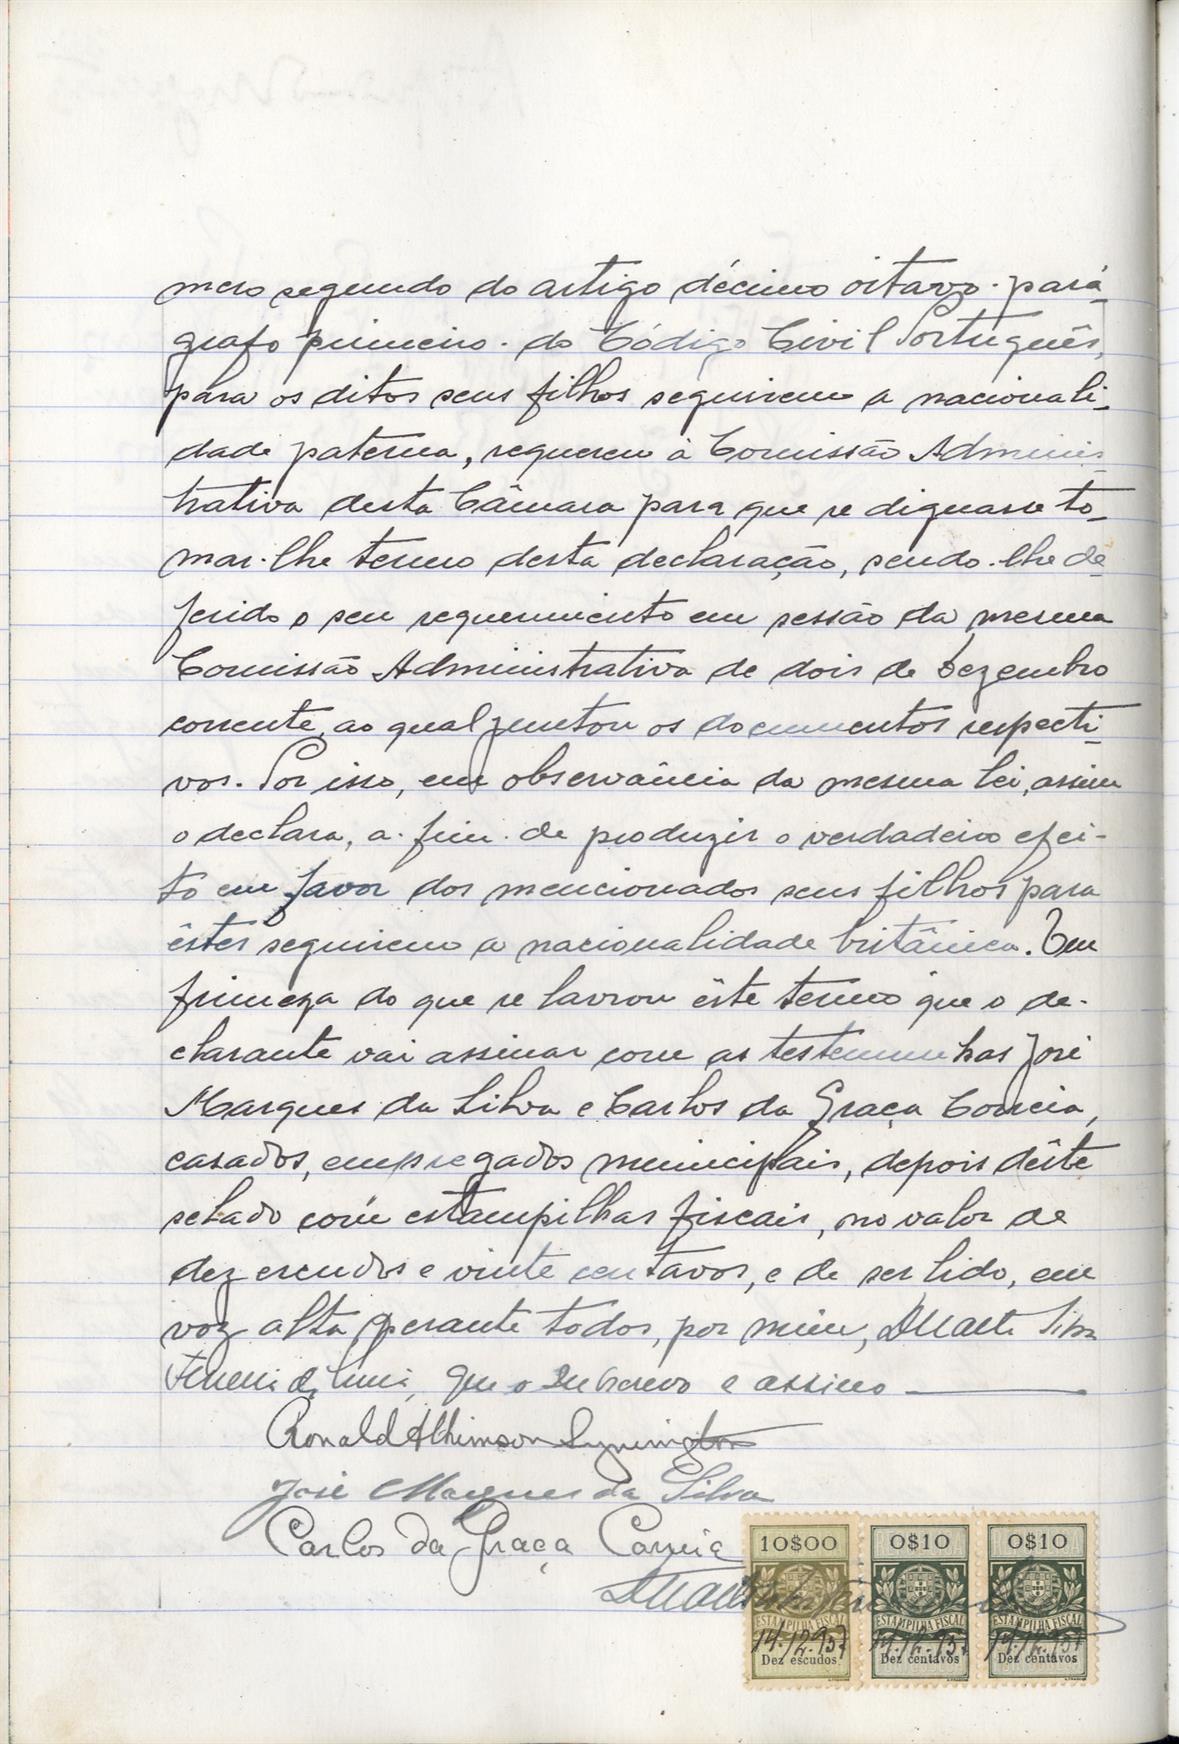 mero segundo do artigo décimo oitavo - pará-
grafo primeiro - do Código Civil Português,
para os ditos seus filhos seguirem a nacionali-
dade paterna, requereu à Comissão Adminis-
trativa desta Câmara para que se dignasse to-
mar-lhe termo desta declaração, sendo-lhe de-
ferido o seu requerimento em sessão da mesma
Comissão Administrativa de dois de Dezembro
corrente, ao qual juntou os documentos respecti-
vos. Por isso, em observância da mesma lei, assim
o declara, a-fim-de produzir o verdadeiro efei-
to em favor dos mencionados seus filhos para
êstes seguirem a nacionalidade britânica. Em
firmeza do que se lavrou êste termo que o de-
clarante vai assinar com as testemunhas José
Marques da Silva e Carlos da Graça Correia,
casados, empregados municipais, depois dêste
selado com estampilhas fiscais, no valor de
dez escudos e vinte centavos, e de ser lido, em
voz alta, perante todos, por mim, Duarte Silva
que o subscrevo e assino
Ronald Athinson Symington
José Marques da Silva
Carlos da Graça Correia
Duarte
10$00 0$10 0$10
ESTAMPILHA FISCAL ESTAMPILHA FISCAL ESTAMPILHA FISCAL
14.12.937 14.12.937 14.12.937
Dez escudos Dez centavos Dez centavos